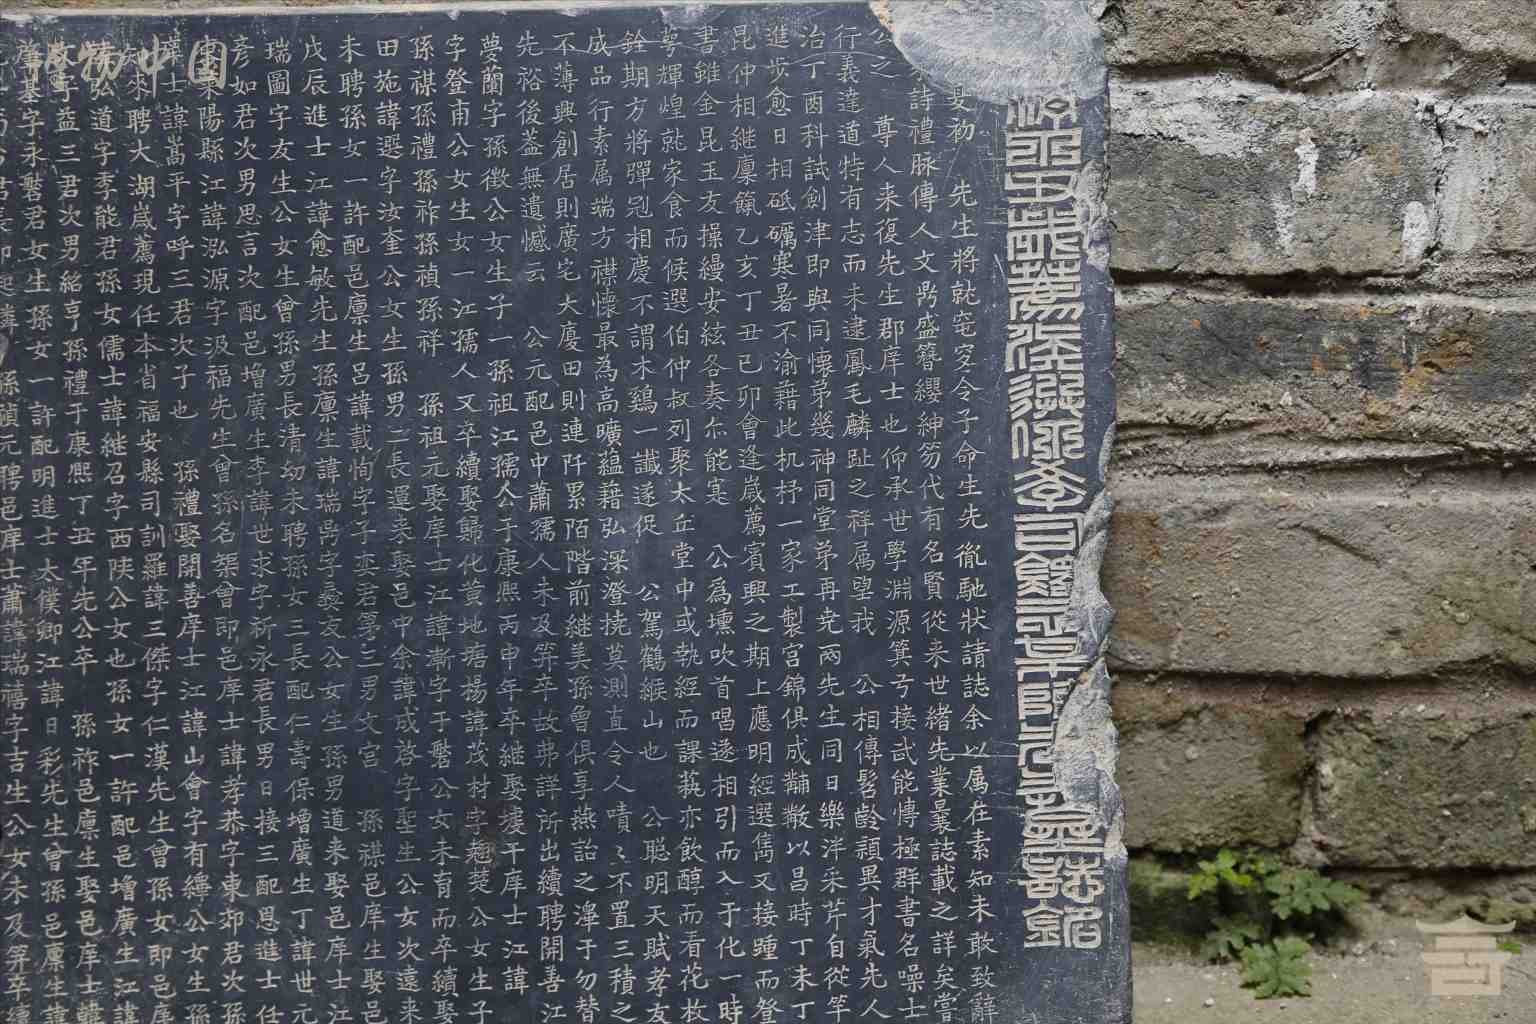 墓誌銘
先生將就窀穸令子命生先㣧馳狀請誌余以属在素知未敢致辭
詩禮脉傳人文鼎盛簪纓紳笏代有名賢從来世緒先業曩誌載之詳矣嘗
尊人来復先生郡庠士也仰承世學淵源箕弓接武能慱極群書名噪士
行義達道特有志而未逮鳳毛麟趾之祥属望我 公相傳髫齡頴異才氣先人
治丁酉科試劍津即與同懷弟幾神同堂弟再尭两先生同日樂泮采芹自從竿
進歩愈日相砥礪寒暑不渝藉此机杼一家工製宫錦俱成黼黻以昌時丁未丁
昆仲相継廪餼乙亥丁丑己卯會逢歳薦賓興之期上應明經選雋又接踵而登
書雖金昆玉友操縵安絃各奏尔能寔 公爲壎吹首唱遂相引而入于化一時
萼輝煌就家食而候選伯仲叔列聚太丘堂中或執經而課蓺亦飲醇而看花枚
銓期方將彈冠相慶不謂木鷄一讖遂促 公駕鶴緱山也 公聪明天賦孝友
成品行素属端方襟懷最為高曠蕴藉弘深澄撓莫測直令人嘖〻不置三積之
不薄興創居則廣宅大廈田則連阡累陌階前継美孫曾俱享燕詒之澤于勿替
先裕後葢無遺憾云 公元配邑中蕭孺人未及笄卒故弗詳所出續聘開善江
夢蘭字孫徴公女生子一孫祖江孺人于康熙丙申年卒継娶堘干庠士江諱
字登甫公女生女一江孺人又卒續娶歸化黄地塘楊諱茂材字趐焚公女生子
孫祺孫禮孫祚孫禎孫祥 孫祖元娶庠士江諱漸字于磐公女未育而卒續娶
田施諱選字汝奎公女生孫男二長還来娶邑中余諱成啓字聖生公女次遠来
未聘孫女一許配邑廪生呂諱載恂字子奕君第三男文宫 孫祺邑庠生娶邑
戊辰進士江諱愈敏先生孫廪生諱瑞呉字彞友公女生孫男道来娶邑庠士江
瑞圖字友生公女生曾孫男長清幼未聘孫女三長配仁壽保增廣生丁諱世元
彥如君次男思言次配邑增廣生李諱世求字祈永君長男日接三配恩進士任
東陽縣江諱泓源字汲福先生曾孫名桀曾即邑庠士諱孝恭字東郊君次孫
士諱嵩平字呼三君次子也 孫禮娶開善庠士江諱山會字有繹公女生孫
来聘大湖歳薦現任本省福安縣司訓羅諱三傑字仁漢先生曾孫女即邑庠
弘道字季能君孫女儒士諱継召字西陜公女也孫女一許配邑增廣生江諱
字益三君次男紹亨孫禮于康熙丁丑年先公卒 孫祚邑廪生娶邑庠士韓
基字永磐君女生孫女一許配明進士太僕卿江諱日彩先生曾孫邑廪生諱
孫禎元聘邑庠士蕭諱瑞禧字吉生公女未及笄卒續